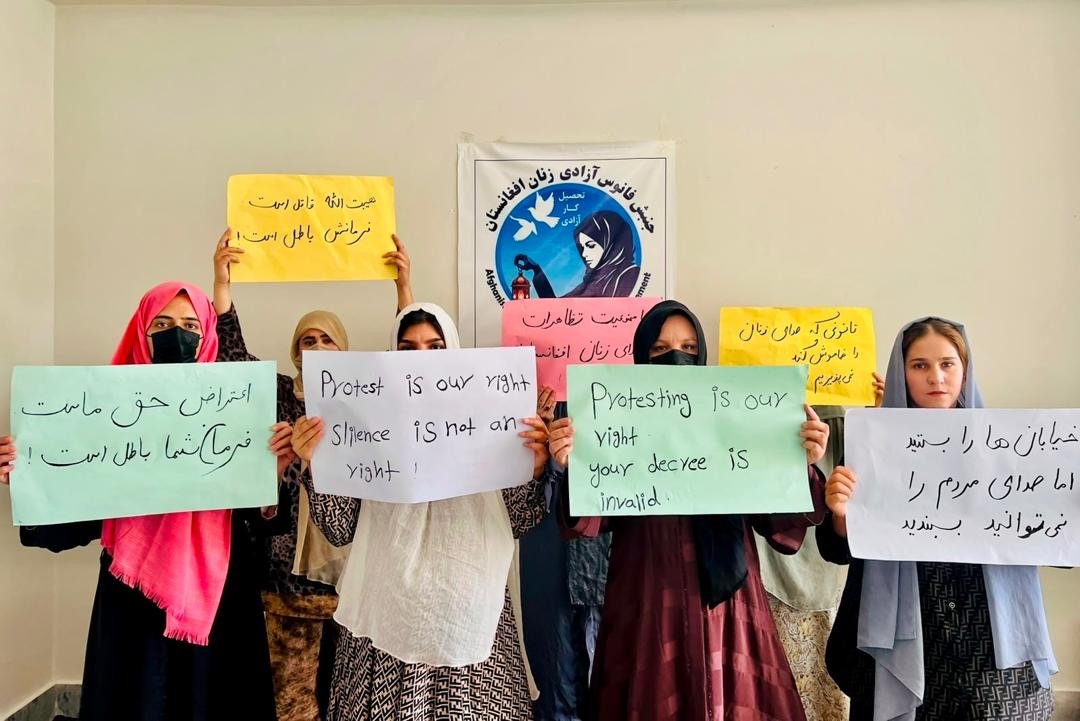 هیبت الله قاتل است
فرمانش باطل است!
جنبش فانوس آزادی زنان افغانستان
تحصیل
کار
آزادی
Afghanis
ement
ممنوعیت تظاهرات
زنان افغانستان
قانونی که صدای زنان
را خاموش کند
نمی‌پذیریم
اعتراض حق ماست
فرمان شما باطل است!
Protest is our right
Slilence is not an
right!
Protesting is our
right
your decree is
invalid.
خیابان ها را بستید
اما صدای مردم را
نمی‌توانید ببندید